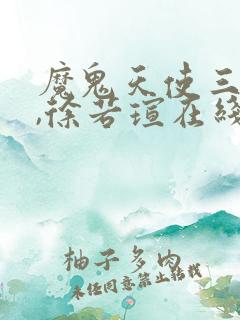 魔鬼天使三
,徐若瑄在线
柚子多肉
未经同意禁止转载